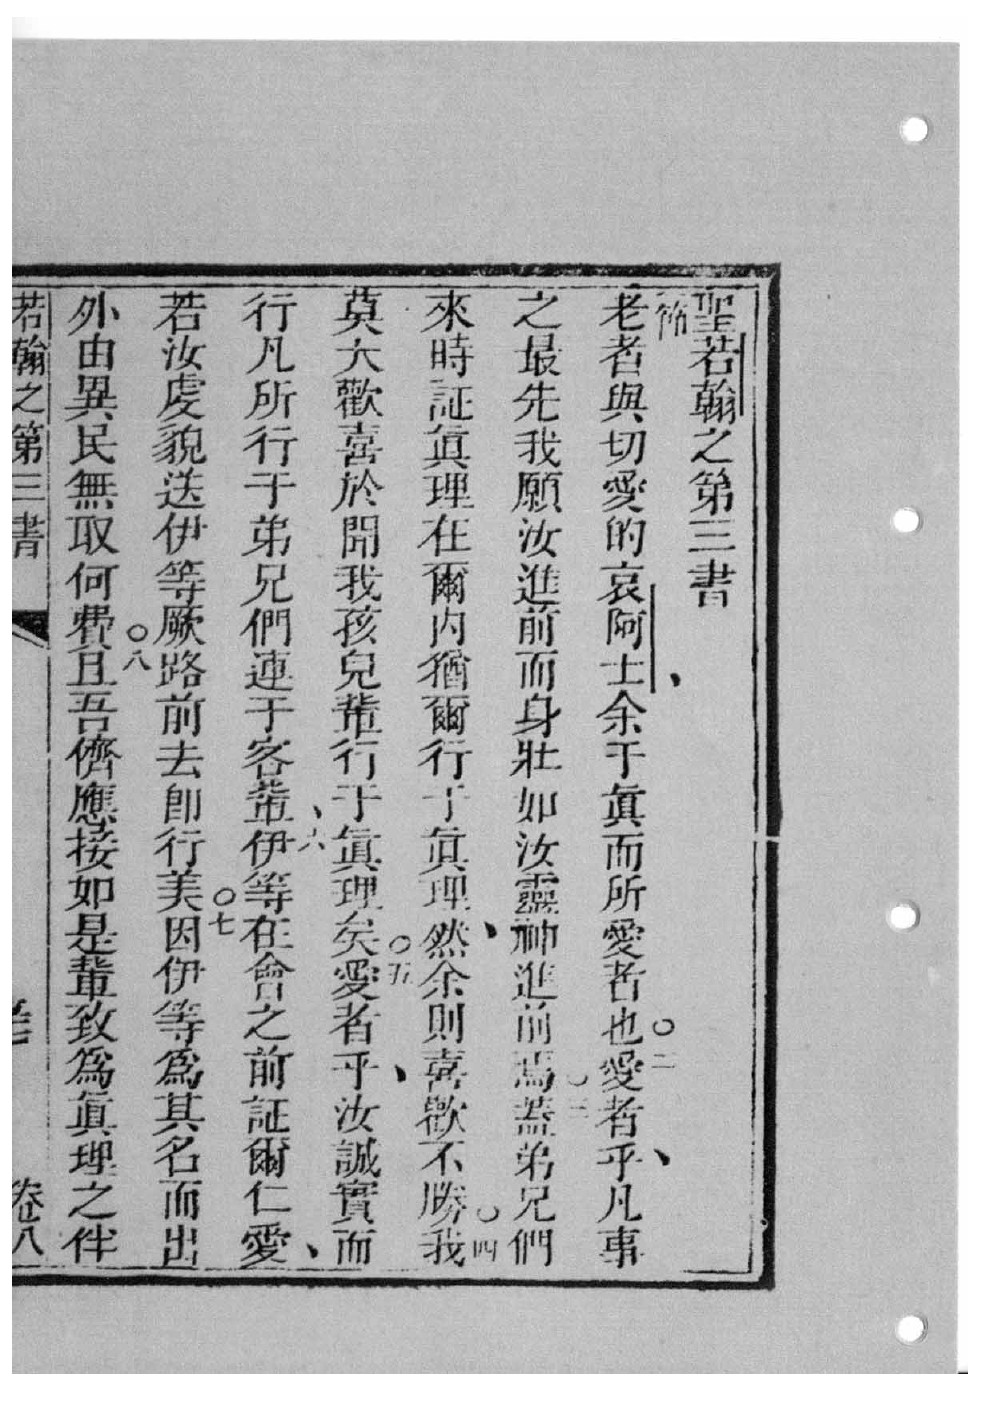 聖若翰之第三書
節
老者與切愛的哀阿士余于眞而所愛者也○二愛者乎凡事
之最先我願汝進前而身壯如汝靈神進前焉○三蓋弟兄們
來時証眞理在爾內猶爾行于眞理然余則喜歡不勝○四我
莫大歡喜於聞我孩兒輩行于眞理矣○五愛者乎汝誠實而
行凡所行于弟兄們連于客輩六伊等在會之前証爾仁愛
若汝虔貌送伊等厥路前去卽行美○七因伊等爲其名而出
外由異民無取何費○八且吾儕應接如是輩致爲眞理之伴
若翰之第三書
卷八